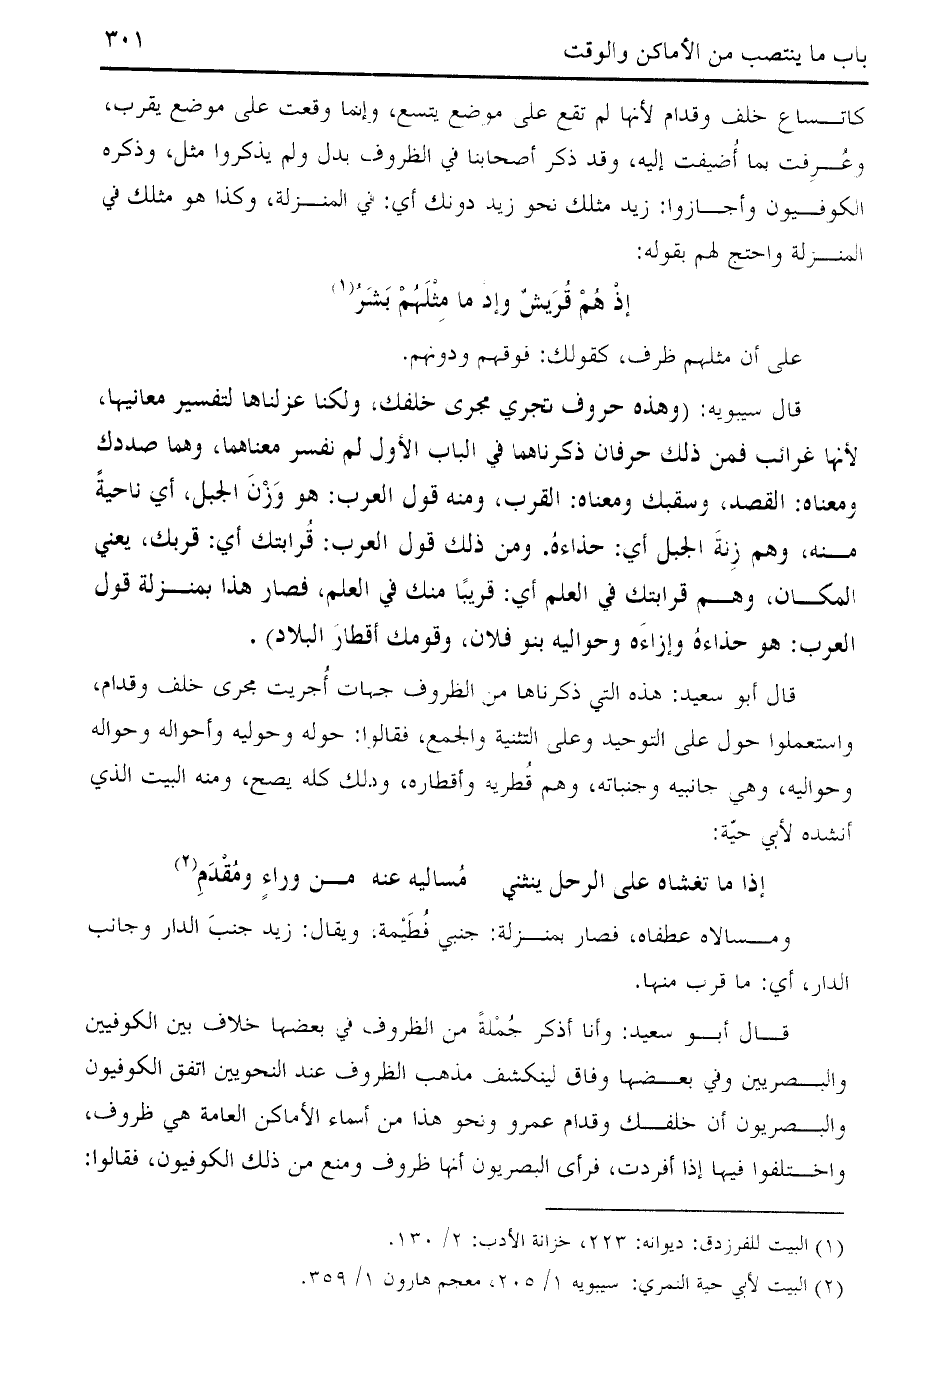 باب ما ينتصب من الأماكن والوقت ٣٠١
كاتساع خلف وقدام لأنها لم تقع على موضع يتسع، وإنما وقعت على موضع يقرب،
وعُرِفت بما أُضيفت إليه، وقد ذكر أصحابنا في الظروف بدل ولم يذكروا مثل، وذكره
الكوفيون وأجازوا: زيد مثلك نحو زيد دونك أي: في المنزلة، وكذا هو مثلك في
المنزلة واحتج لهم بقوله:
إذْ هُمْ قُرَيشٌ وإذ ما مِثْلَهُمْ بَشَرُ(١)
على أن مثلهم ظرف، كقولك: فوقهم ودونهم.
قال سيبويه: (وهذه حروف تجري مجرى خلفك، ولكنا عزلناها لتفسير معانيها،
لأنها غرائب فمن ذلك حرفان ذكرناهما في الباب الأول لم نفسر معناهما، وهما صددك
ومعناه: القصد، وسقبك ومعناه: القرب، ومنه قول العرب: هو وَزْنَ الجبل، أي ناحيةً
منه، وهم زِنةَ الجبل أي: حذاءهُ. ومن ذلك قول العرب: قُرابتك أي: قربك، يعني
المكان، وهم قرابتك في العلم أي: قريبًا منك في العلم، فصار هذا بمنزلة قول
العرب: هو حذاءهُ وإزاءَه وحواليه بنو فلان، وقومك أقطارَ البلاد) .
قال أبو سعيد: هذه التي ذكرناها من الظروف جهات أُجريت مجرى خلف وقدام،
واستعملوا حول على التوحيد وعلى التثنية والجمع، فقالوا: حوله وحوليه وأحواله وحواله
وحواليه، وهي جانبيه وجنباته، وهم قُطريه وأقطاره، وذلك كله يصح، ومنه البيت الذي
أنشده لأبي حيّة:
إذا ما تغشاه على الرحل ينثني مُساليه عنه من وراءٍ ومُقْدَمِ(٢)
ومسالاه عطفاه، فصار بمنزلة: جنبي فُطَيْمة. ويقال: زيد جنبَ الدار وجانب
الدار، أي: ما قرب منها.
قال أبو سعيد: وأنا أذكر جُمْلةً من الظروف في بعضها خلاف بين الكوفيين
والبصريين وفي بعضها وفاق لينكشف مذهب الظروف عند النحويين اتفق الكوفيون
والبصريون أن خلفك وقدام عمرو ونحو هذا من أسماء الأماكن العامة هي ظروف،
واختلفوا فيها إذا أفردت، فرأى البصريون أنها ظروف ومنع من ذلك الكوفيون، فقالوا:
(١) البيت للفرزدق: ديوانه: ٢٢٣، خزانة الأدب: ٢/ ١٣٠.
(٢) البيت لأبي حية النمري: سيبويه ١/ ٢٠٥، معجم هارون ١/ ٣٥٩.